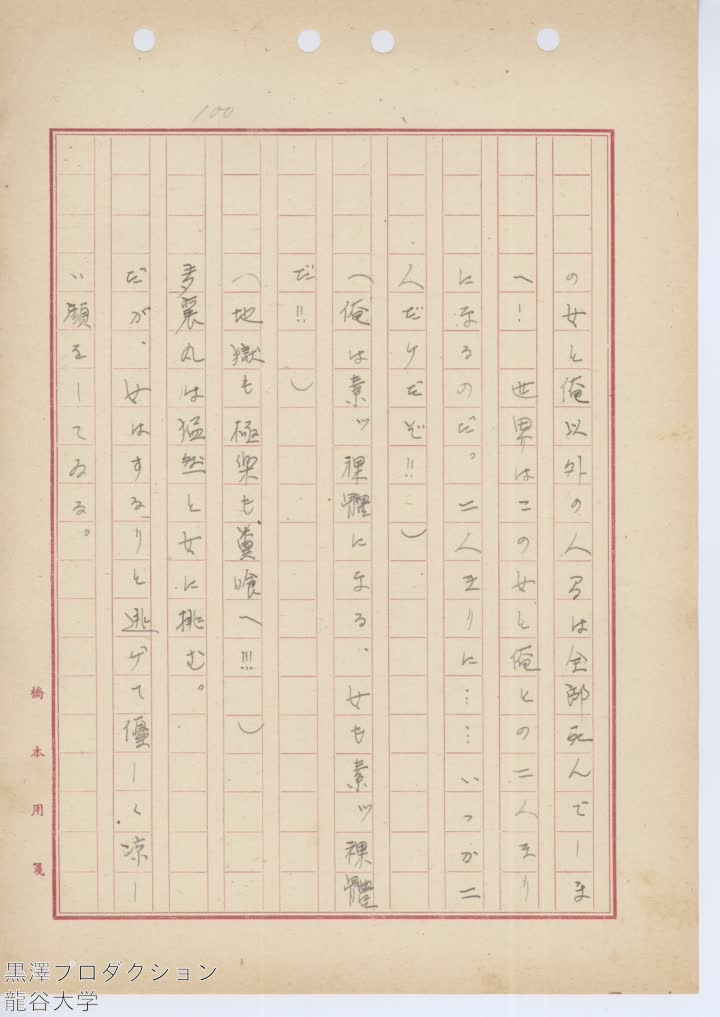 100
の女と俺以外の人間は全部死んでしま
へ！　世界はこの女と俺との二人きり
になるのだ。二人きりに……いつか二
人だけだぞ!!）
（俺は素ッ裸體になる、女も素ッ裸體
だ!!）
（地獄も極楽も糞喰へ!!!）
多襄丸は猛然と女に挑む。
だが、女はするりと逃げて優しく凉し
い顔をしてゐる。
橋本用箋
黒澤プロダクション
龍谷大学